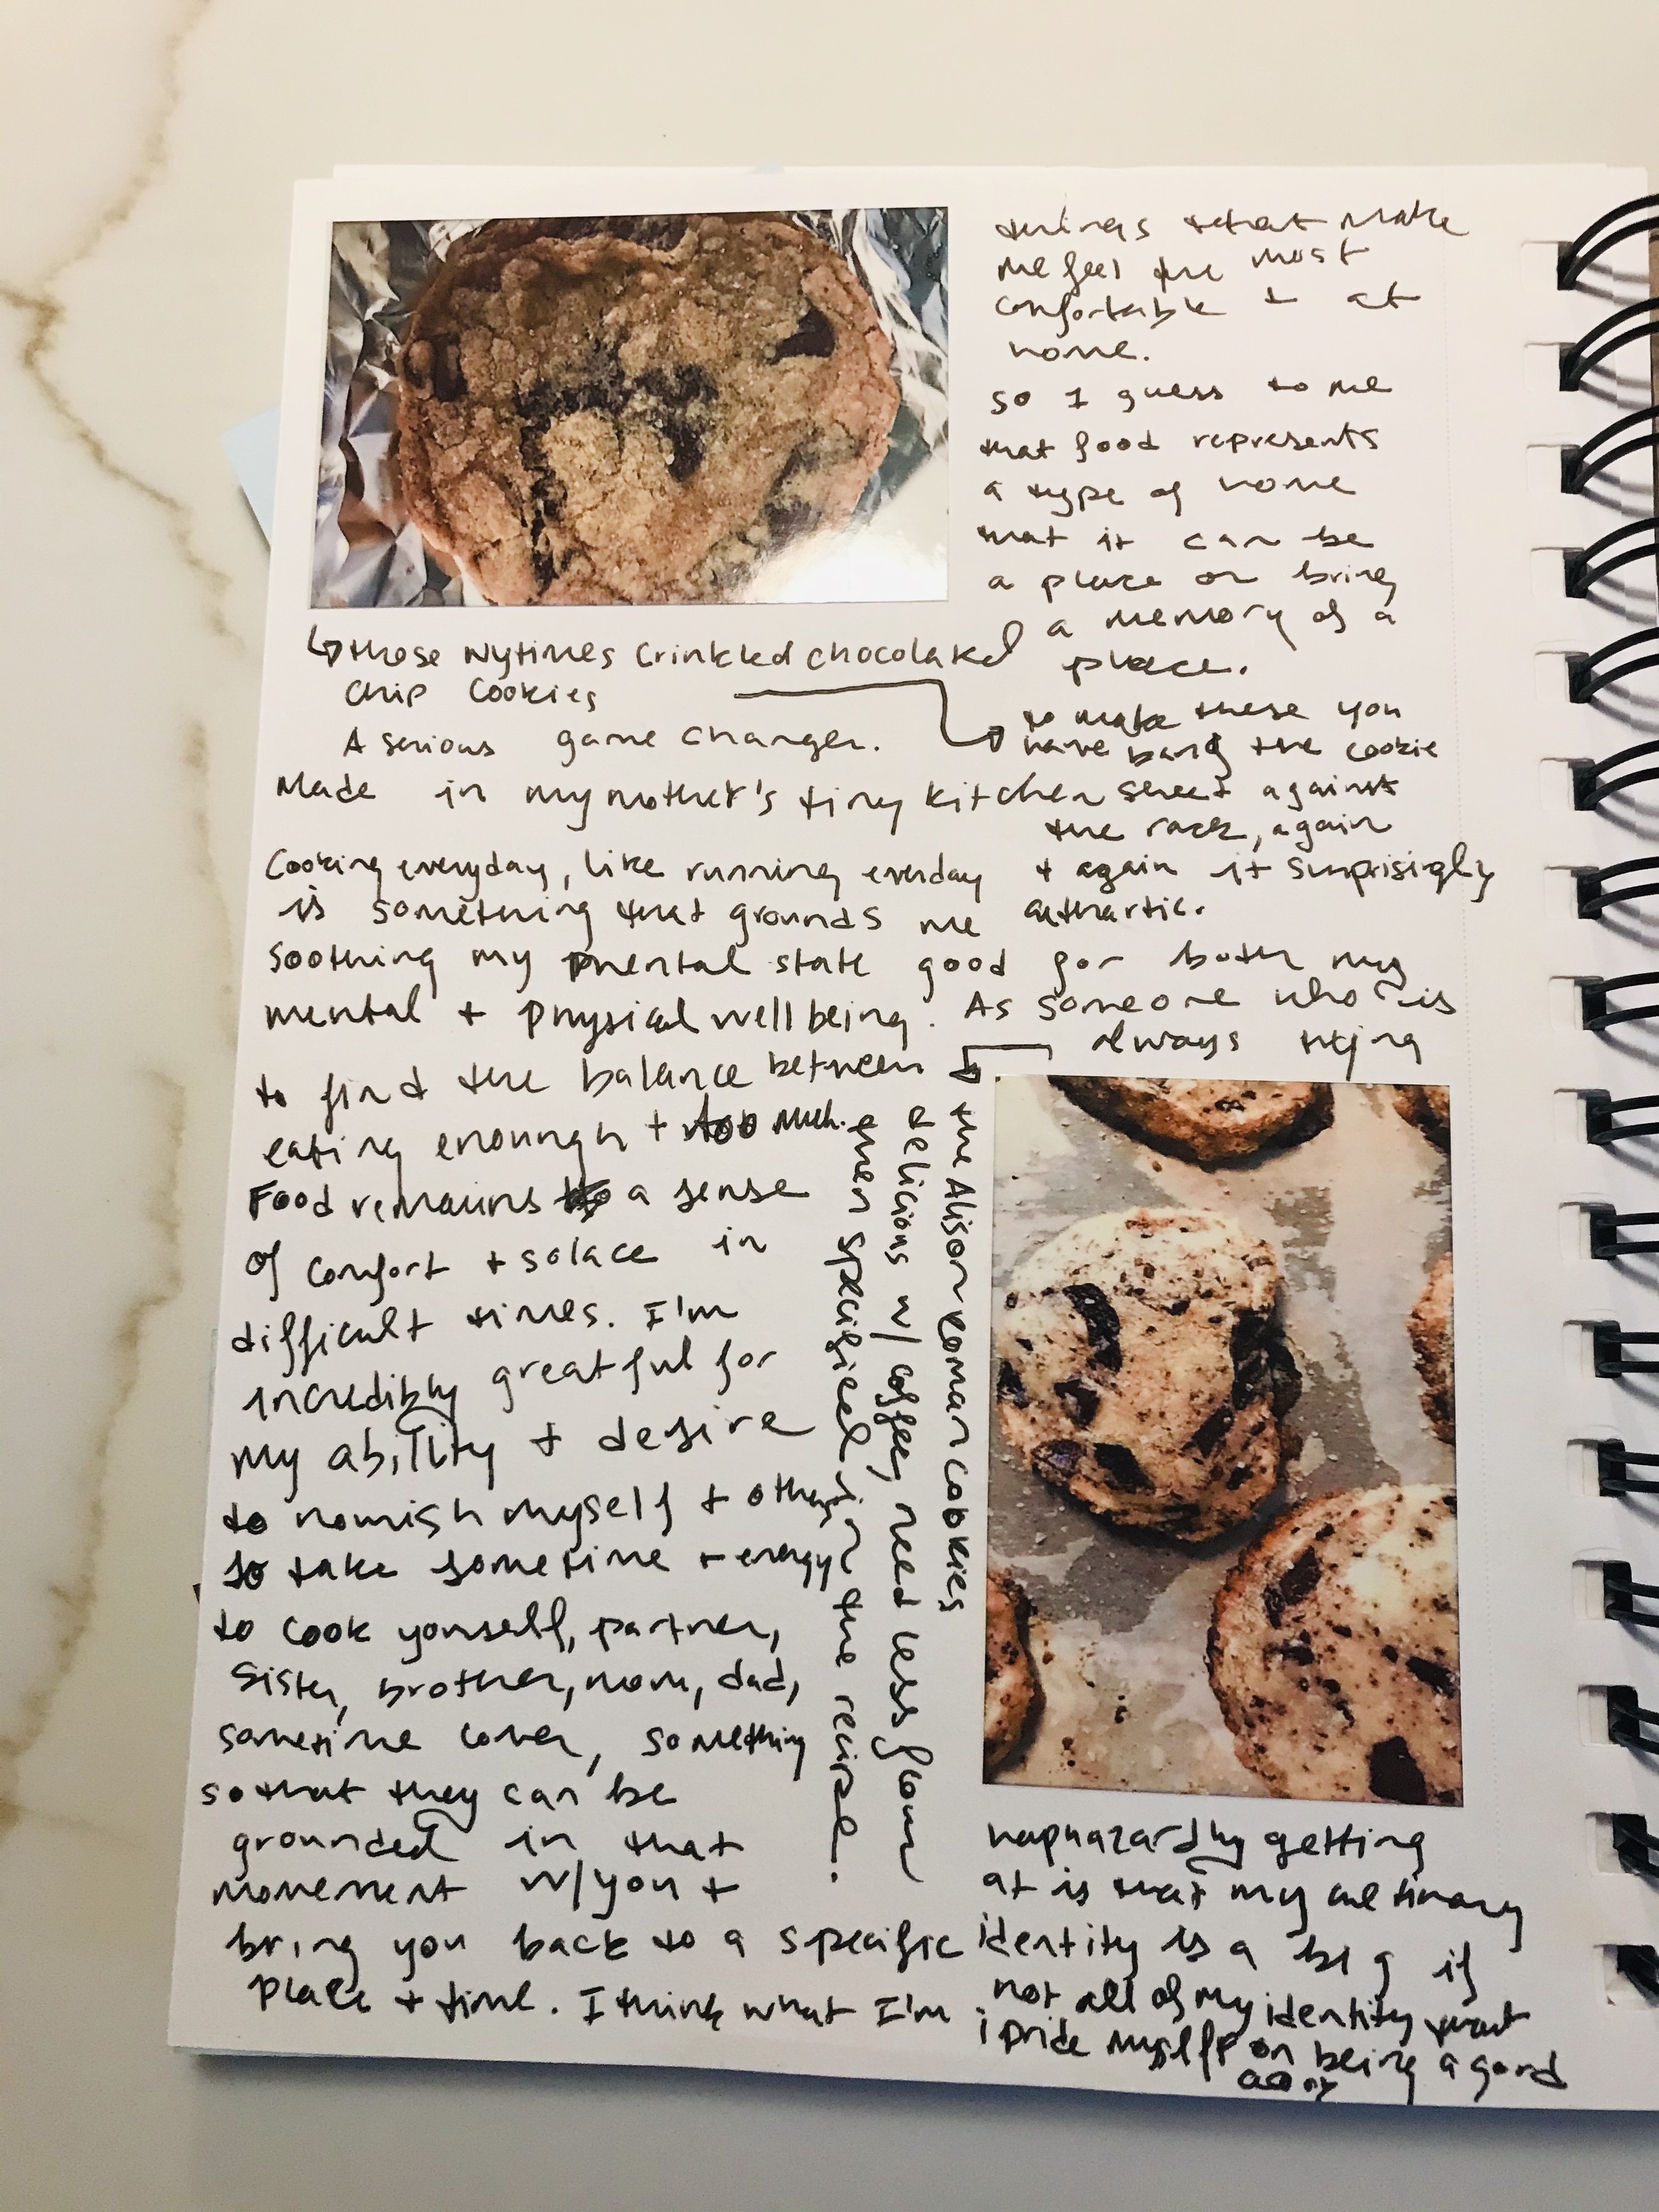 things that make
me feel the most
comfortable + at
home.
so I guess to me
that food represents
a type of home
that it can be
a place or bring
a memory of a
place.
those Nytimes Crinkled chocolate
Chip Cookies
A serious game changer.
Made in my mother's tiny kitchen
to make these you
have bang the cookie
sheet against
the rack, again
+ again it surprisigly
cathartic.
Cooking everyday, like running everday
is something that grounds me
soothing my mental state good for both my
mental + physical well being. As someone who is
always trying
to find the balance between
eating enough + too much.
Food remains a sense
of comfort + solace in
difficult times. I'm
incredibly greatful for
my ability + desire
to nourish myself + others.
to take sometime + energy
to cook yourself, partner,
sister, brother, mom, dad,
sometime lover, something
so that they can be
grounded in that
movement w/you +
bring you back to a specific
place + time. I think what I'm
the Alison Roman cookies
delicious w/ coffee, need less flour
then specified in the recipe.
haphazardly getting
at is that my culinary
identity is a big if
not all of my identity
i pride myself on being a good